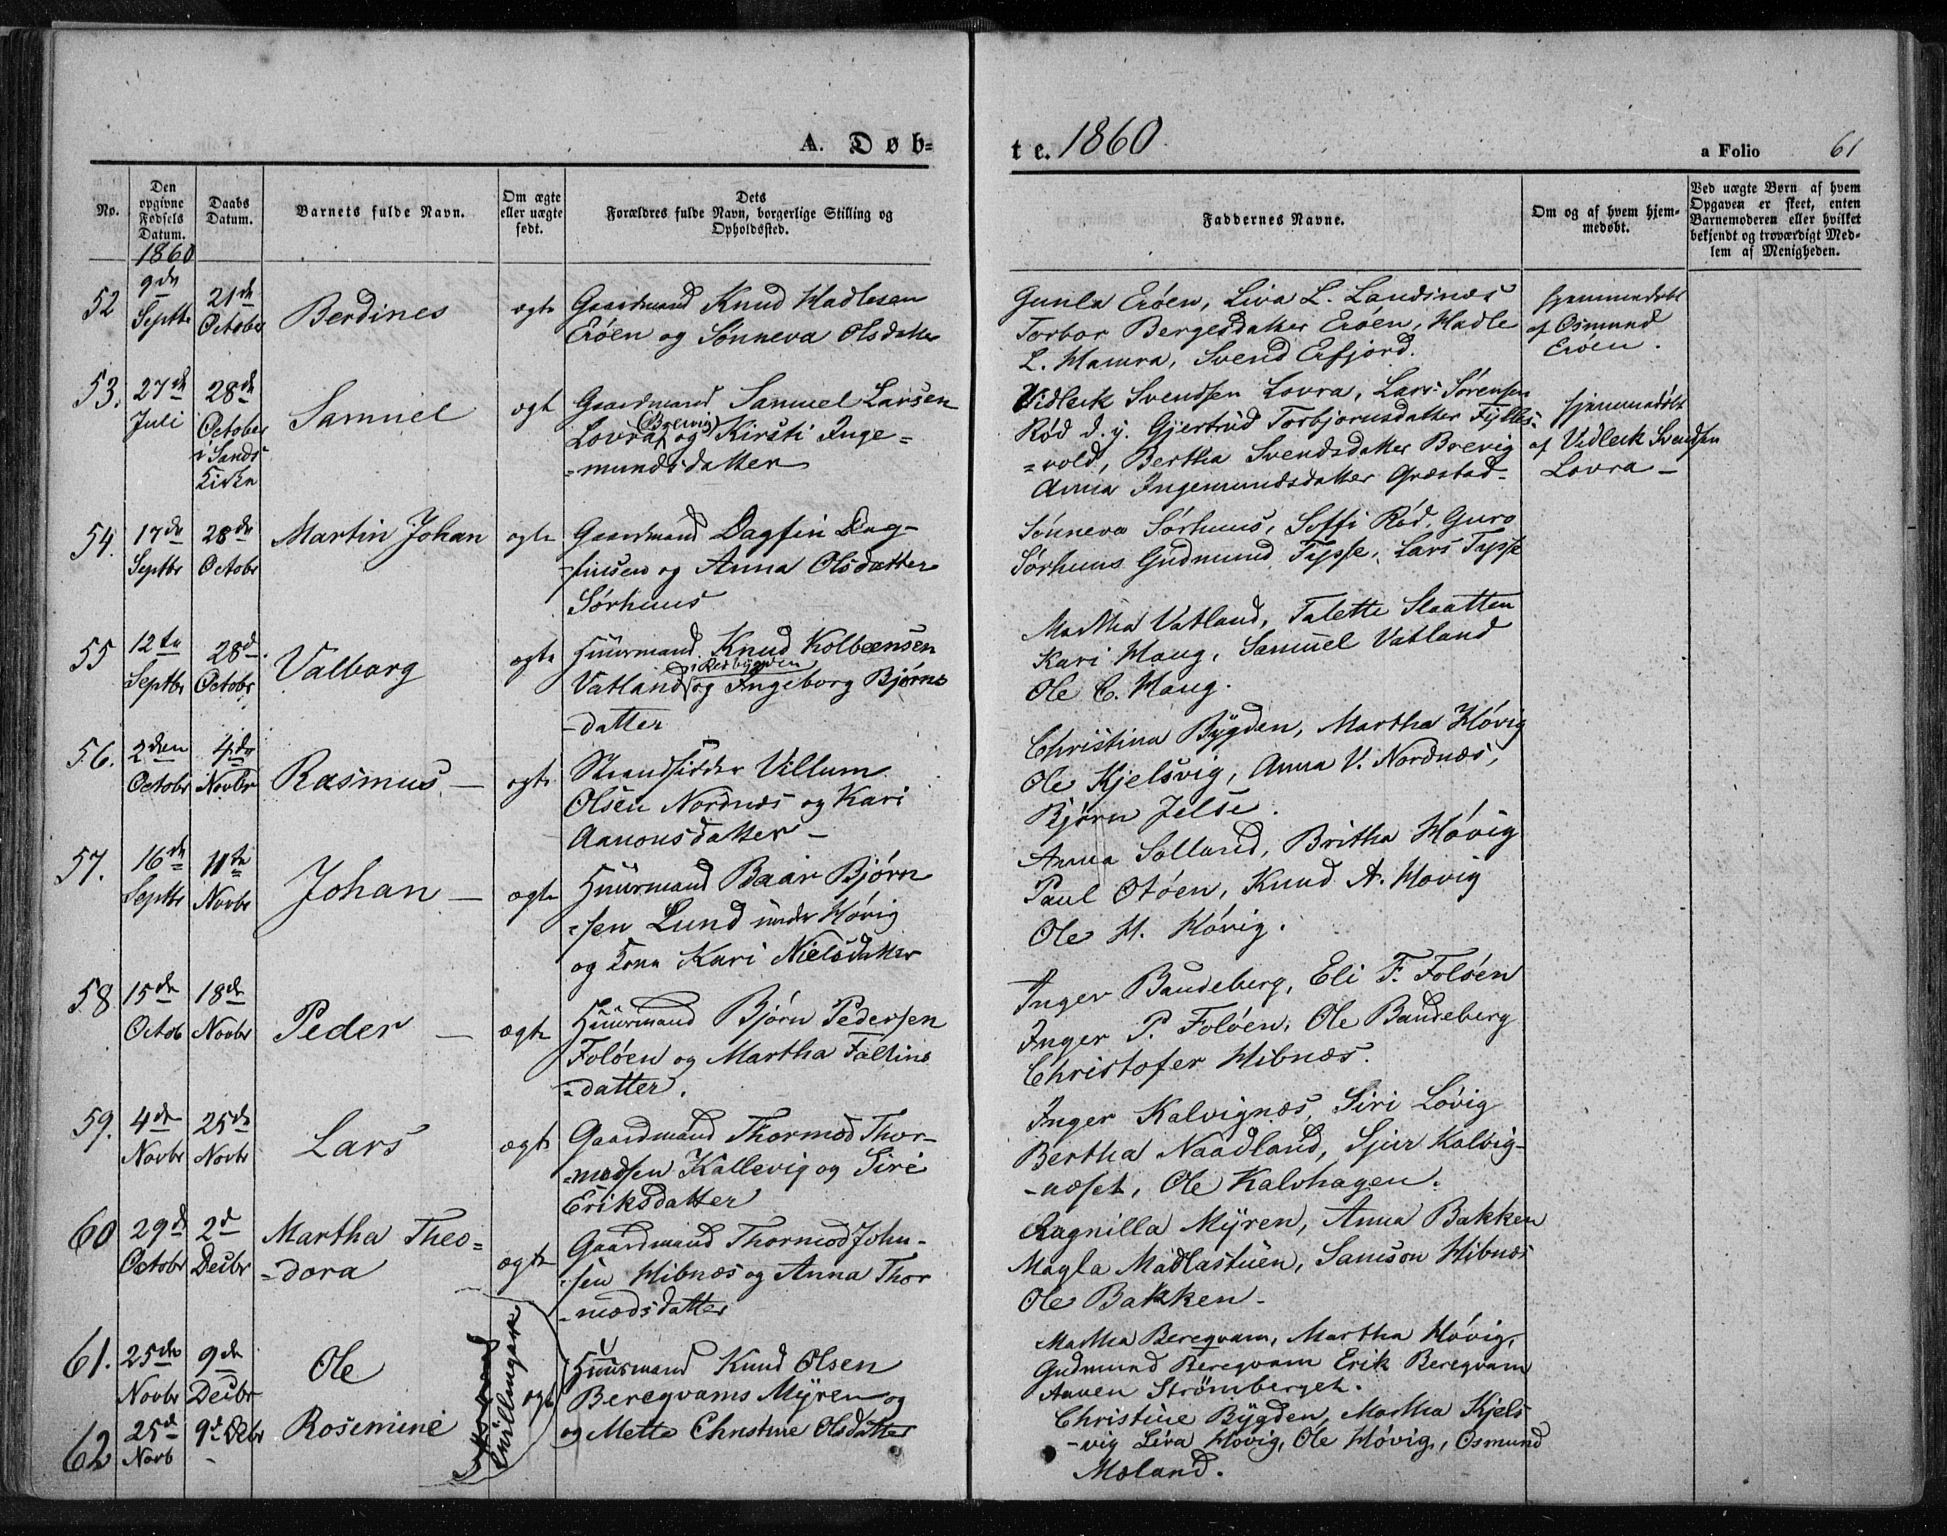 A. Døb=
te. 1860.
a Folio 61
No.
Den opgivne Fødsels Datum.
Daabs Datum.
Barnets fulde Navn.
Om ægte eller uægte født.
Dets Forældres fulde Navn, borgerlige Stilling og Opholdssted.
Faddernes Navne.
Om og af hvem hjemmedøbt.
Ved uægte Børn af hvem Opgaven er skeet, enten Barnemoderen eller hvilket bekjendt og troværdigt Medlem af Menigheden.
1860
52 9de Septbr 21de October Berdines ægte
Gaardmand Knud Hadlesen
Erøen og Sønneva Olsdatter
Gunla Erøen, Liva L. Landsnæs
Torbor Bergesdatter Erøen, Hadle
L. Hamra, Svend Erfjord.
hjemmedøbt
af Osmund
Erøen.
53. 27de Juli 28de October i Sands Kirke Samuel ægte
Gaardmand Samuel Larsen
Lovra (Brevig) og Kirsti Inge=
=mundsdatter
Vidleik Svendsen Lovra, Lars Sørensen
Rød d. y. Gjertrud Torbjørnsdatter Fylles=
=vold, Bertha Svendsdatter Brevig
Anna Ingemundsdatter Græstad-
hjemmedøbt
af Vidleik Svendsen
Lovra -
54. 17de Septbr 28de Octobr Martin Johan ægte
Gaardmand Dagfin Dag-
-finsen og Anna Olsdatter
Sørhuus
Sønneva Sørhuus, Soffi Rød, Guro
Sørhuus Gudmund Tysse, Lars Tysse
55 12te Septbr 28de Octobr Valborg ægte
Huusmand Knud Kolbeensen
Vatland og Ingeborg Bjørns
-datter
Martha Vatland, Talette Slaatten
Kari Haug, Samuel Vatland
Ole C. Haug.
56. 2den Octobr 4de Novbr Rasmus - ægte
Strandsidder Villum
Olsen Nordnæs og Kari
Aanonsdatter -
Christina Bÿgden, Martha Høvig
Ole Kjelsvig, Anna V. Nordnæs,
Bjørn Jelse.
57. 16de Septbr 11te Novbr Johan - ægte
Huusmand Baar Bjørn
=sen Lund under Høvig
og Kona Kari Nielsdatter
Anna Solland, Britha Høvig
Paul Otøen, Knud A. Høvig
Ole H. Høvig.
58 15de Octob 18de Novbr Peder - ægte
Huusmand Bjørn Pedersen
Foløen og Martha Faltins
-datter.
Inger Baudeberg, Eli F. Foløen
Inger P. Foløen, Ole Baudeberg
Christofer Hibnæs.
59. 4de Novbr 25de Novbr Lars ægte
Gaardmand Thormod Thor-
-modsen Kallevig og Siri
Eriksdatter
Inger Kalvignæs, Siri Løvig
Bertha Naadland, Sjur Kalvig-
-næset, Ole Kalvhagen.
60 29de Octobr 2de Decbr Martha Theo=
=dora ægte
Gaardmand Thormod John-
-sen Hibnæs og Anna Thor
-modsdatter
Ragnilla Mÿren, Anna Bakken
Magla Madlastuen, Samson Hibnæs
Ole Bakken -
61. 25de Novbr 9de Decbr Ole
62 25de Novb 9de Debr Rosemine
Tvillinger
ægte
Huusmand Knud Olsen
Beregvams Mÿren og
og Mette Christine Olsdatter
Martha Beregvam, Martha Høvig,
Gudmund Beregvam Erik Beregvam
Aanen Strømberget.
Christine Bÿgden, Martha Kjels
-vig Liva Høvig, Ole Høvig, Osmund
Mæland.